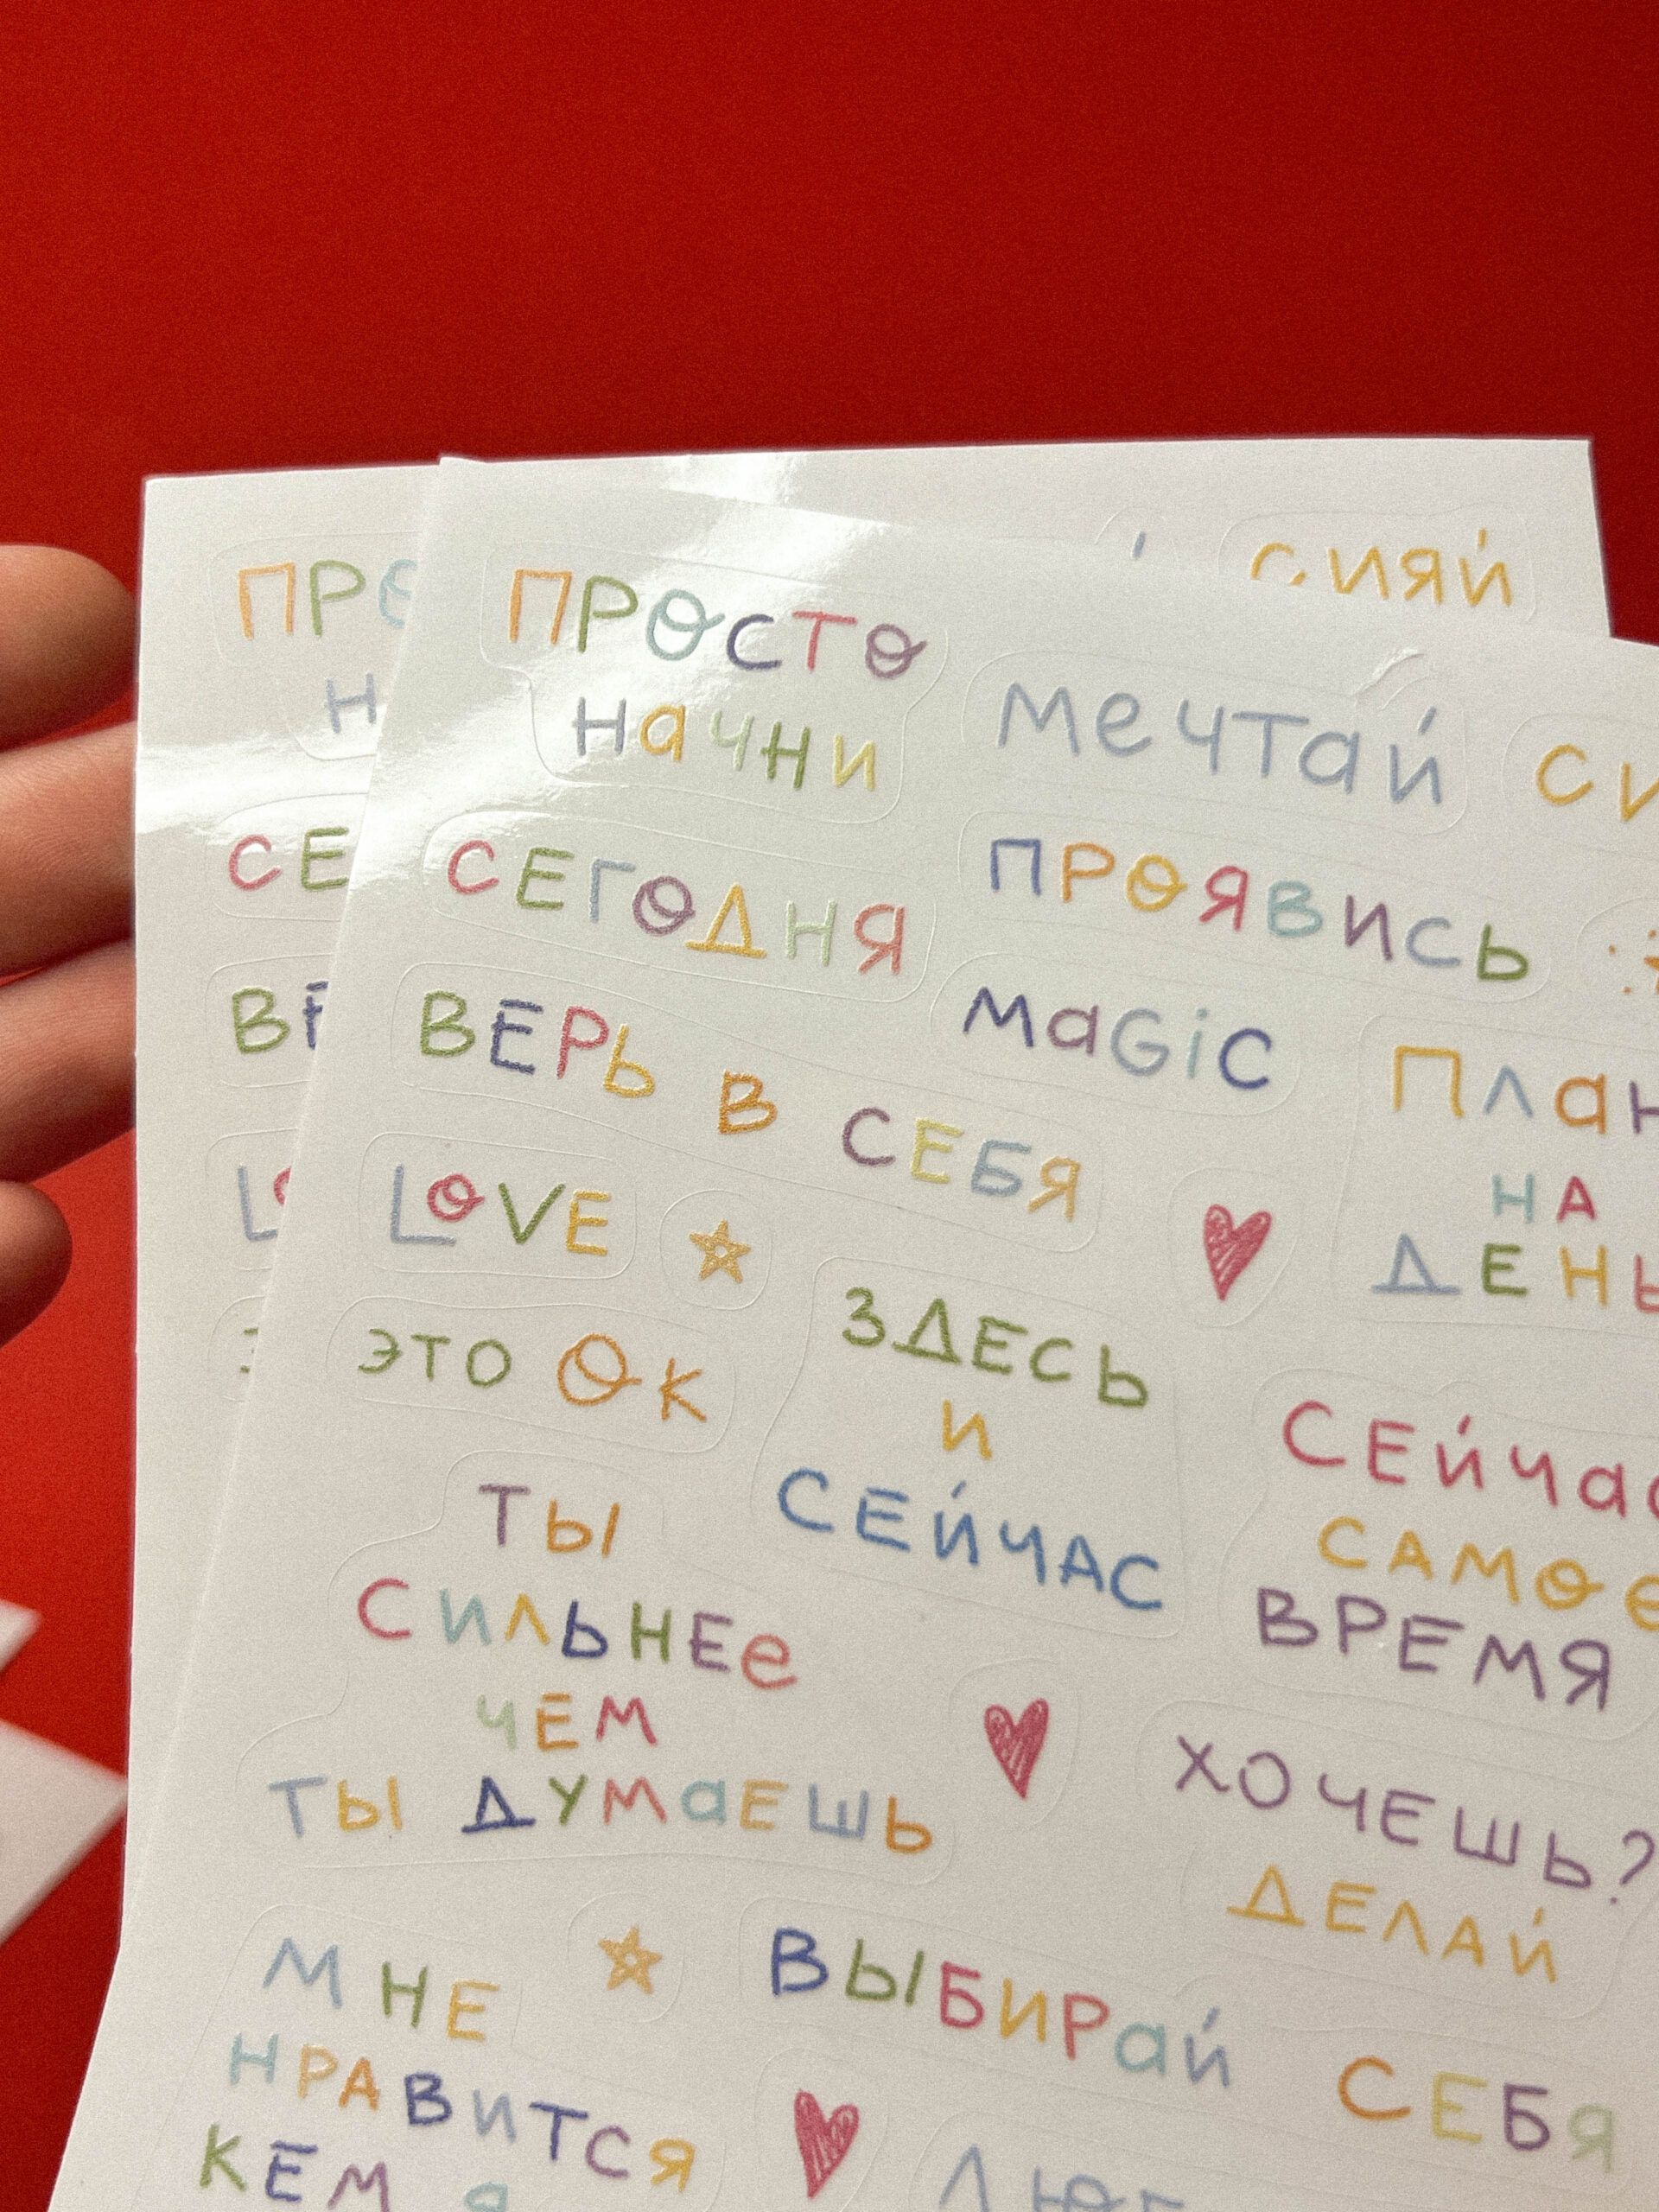 ПРОСТО
начни
мечтай
сияй
СЕГОДНЯ
ПРОЯВИСЬ
ВЕРЬ В СЕБЯ
MaGiC
План
НА
ДЕНЬ
LOVE
ЭТО ОК
ЗДЕСЬ
И
СЕЙЧАС
СЕЙЧаС
САМОЕ
ВРЕМЯ
ТЫ
СИЛЬНЕе
ЧЕМ
ТЫ ДУМаЕШЬ
ХОЧЕШЬ?
ДЕЛАЙ
МНЕ
НРАВИТСЯ
КЕМ Я
ВЫБИРаЙ СЕБЯ